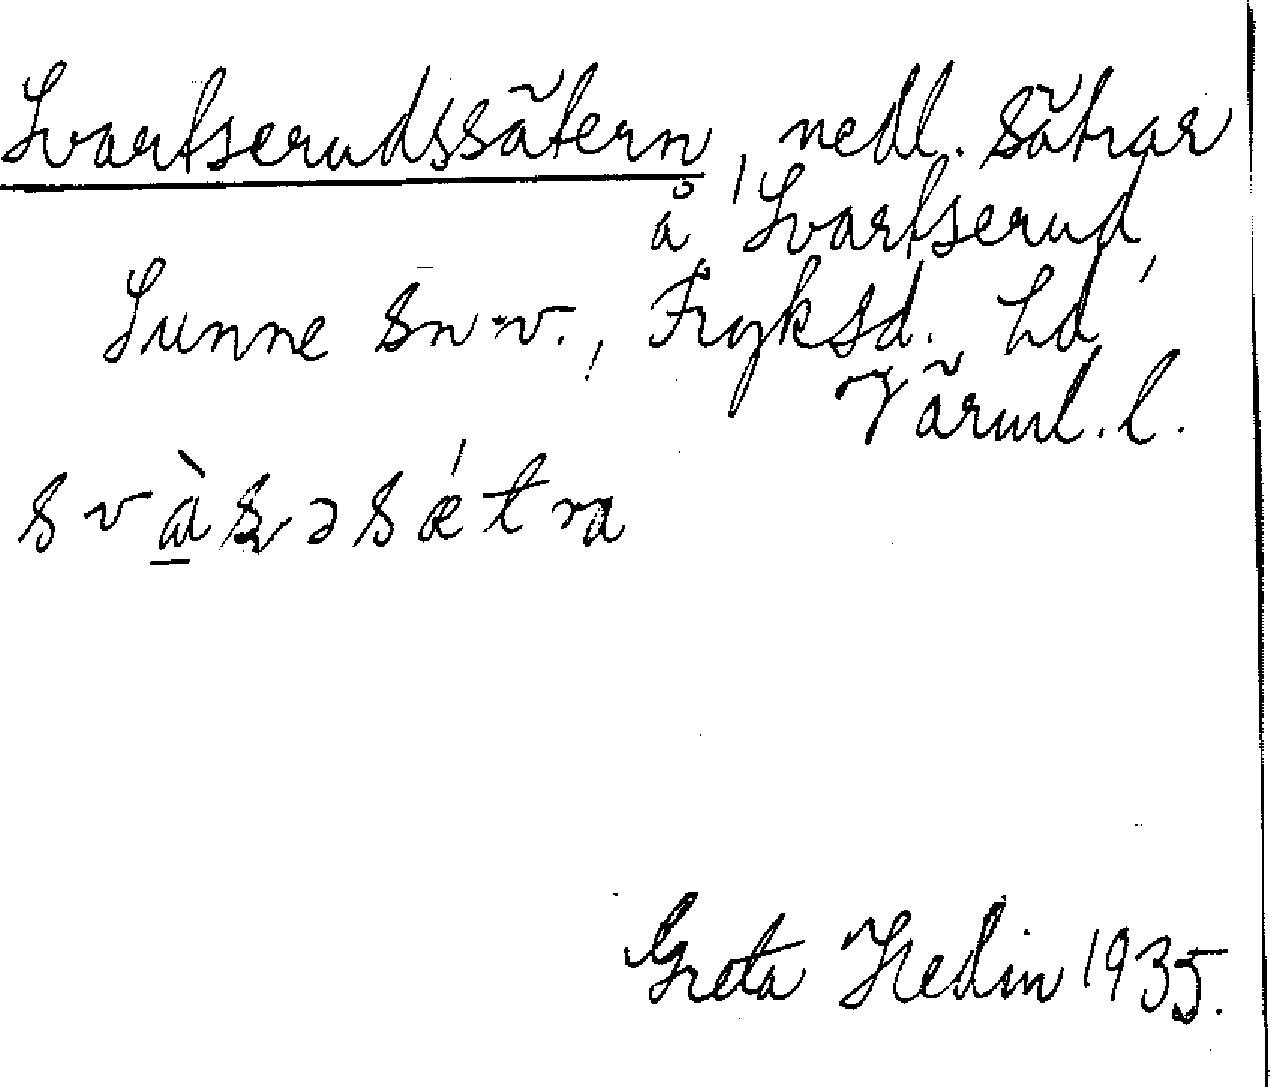 Svartserudssätern, nedl. sätrar
å Svartserud,
Sunne sn v., Fryksd. hd
Värml. l.
svàʂəsǽtra
Greta Hedin 1935.